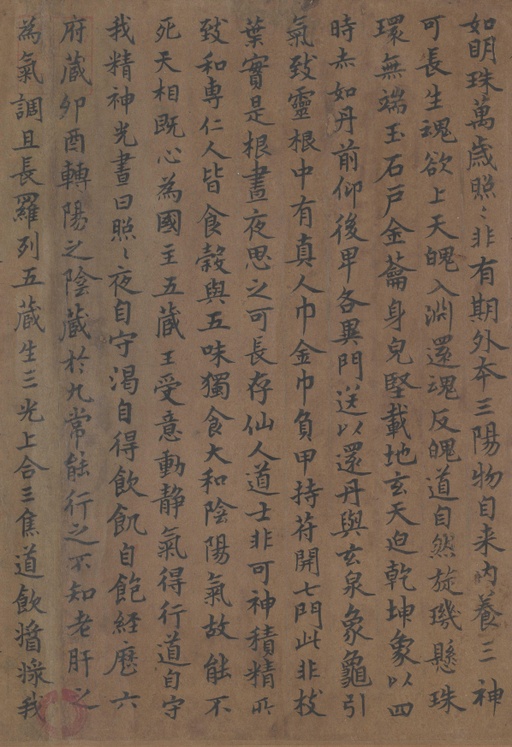 如明珠萬歲照〻非有期外本三陽物自来内養三神
可長生魂欲上天魄入淵還魂反魄道自然旋璣懸珠
環無端玉石戶金蘥身皃堅載地玄天迫乾坤象以四
時赤如丹前仰後甲各異門送以還丹與玄泉象龜引
氣致靈根中有真人巾金巾負甲持苻開七門此非枝
葉實是根晝夜思之可長存仙人道士非可神積精所
致和専仁人皆食榖與五味獨食大和陰陽氣故能不
死天相既心為國主五蔵王受意動静氣得行道自守
我精神光晝日照〻夜自守渴自得飲飢自飽経歷六
府蔵卯酉轉陽之陰蔵於九常能行之不知老肝之
為氣調且長羅列五蔵生三光上合三焦道飲醬捸我